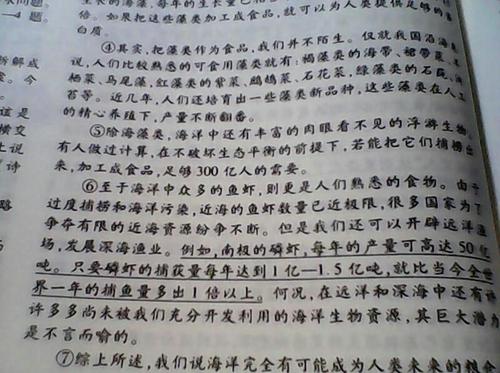 问题。
—4题。
生长的海藻,每年的生长量已相
倍。如果把这些藻类加工成食品,就可以为人类提供足够的
白质。
④其实,把藻类作为食品,我们并不陌生。仅就我国沿海
说,人们比较熟悉的可食用藻类就有:褐藻类的海带、裙带菜、羊
栖菜、马尾藻,红藻类的紫菜、鹧鸪菜、石花菜,绿藻类的石莼、
苔等。近几年,人们还培育出一些藻类新品种,这些藻类在人工
的精心养殖下,产量不断翻番。
⑤除海藻类,海洋中还有丰富的肉眼看不见的浮游生物。
有人做过计算,在不破坏生态平衡的前提下,若能把它们捕捞出
来,加工成食品,足够300亿人的需要。
⑥至于海洋中众多的鱼虾,则更是人们熟悉的食物。由于
过度捕捞和海洋污染,近海的鱼虾数量已近极限,很多国家为了
争夺有限的近海资源纷争不断。但是我们还可以开辟远洋渔
场,发展深海渔业。例如,南极的磷虾,每年的产量可高达50亿
吨。只要磷虾的捕获量每年达到1亿—1.5亿吨,就比当今全世
界一年的捕鱼量多出1倍以上。何况,在远洋和深海中还有
许多多尚未被我们充分开发利用的海洋生物资源,其巨大潜
是不言而喻的。
⑦综上所述,我们说海洋完全有可能成为人类未来的粮仓
解成
。今
该是
横交
上说
诗
路